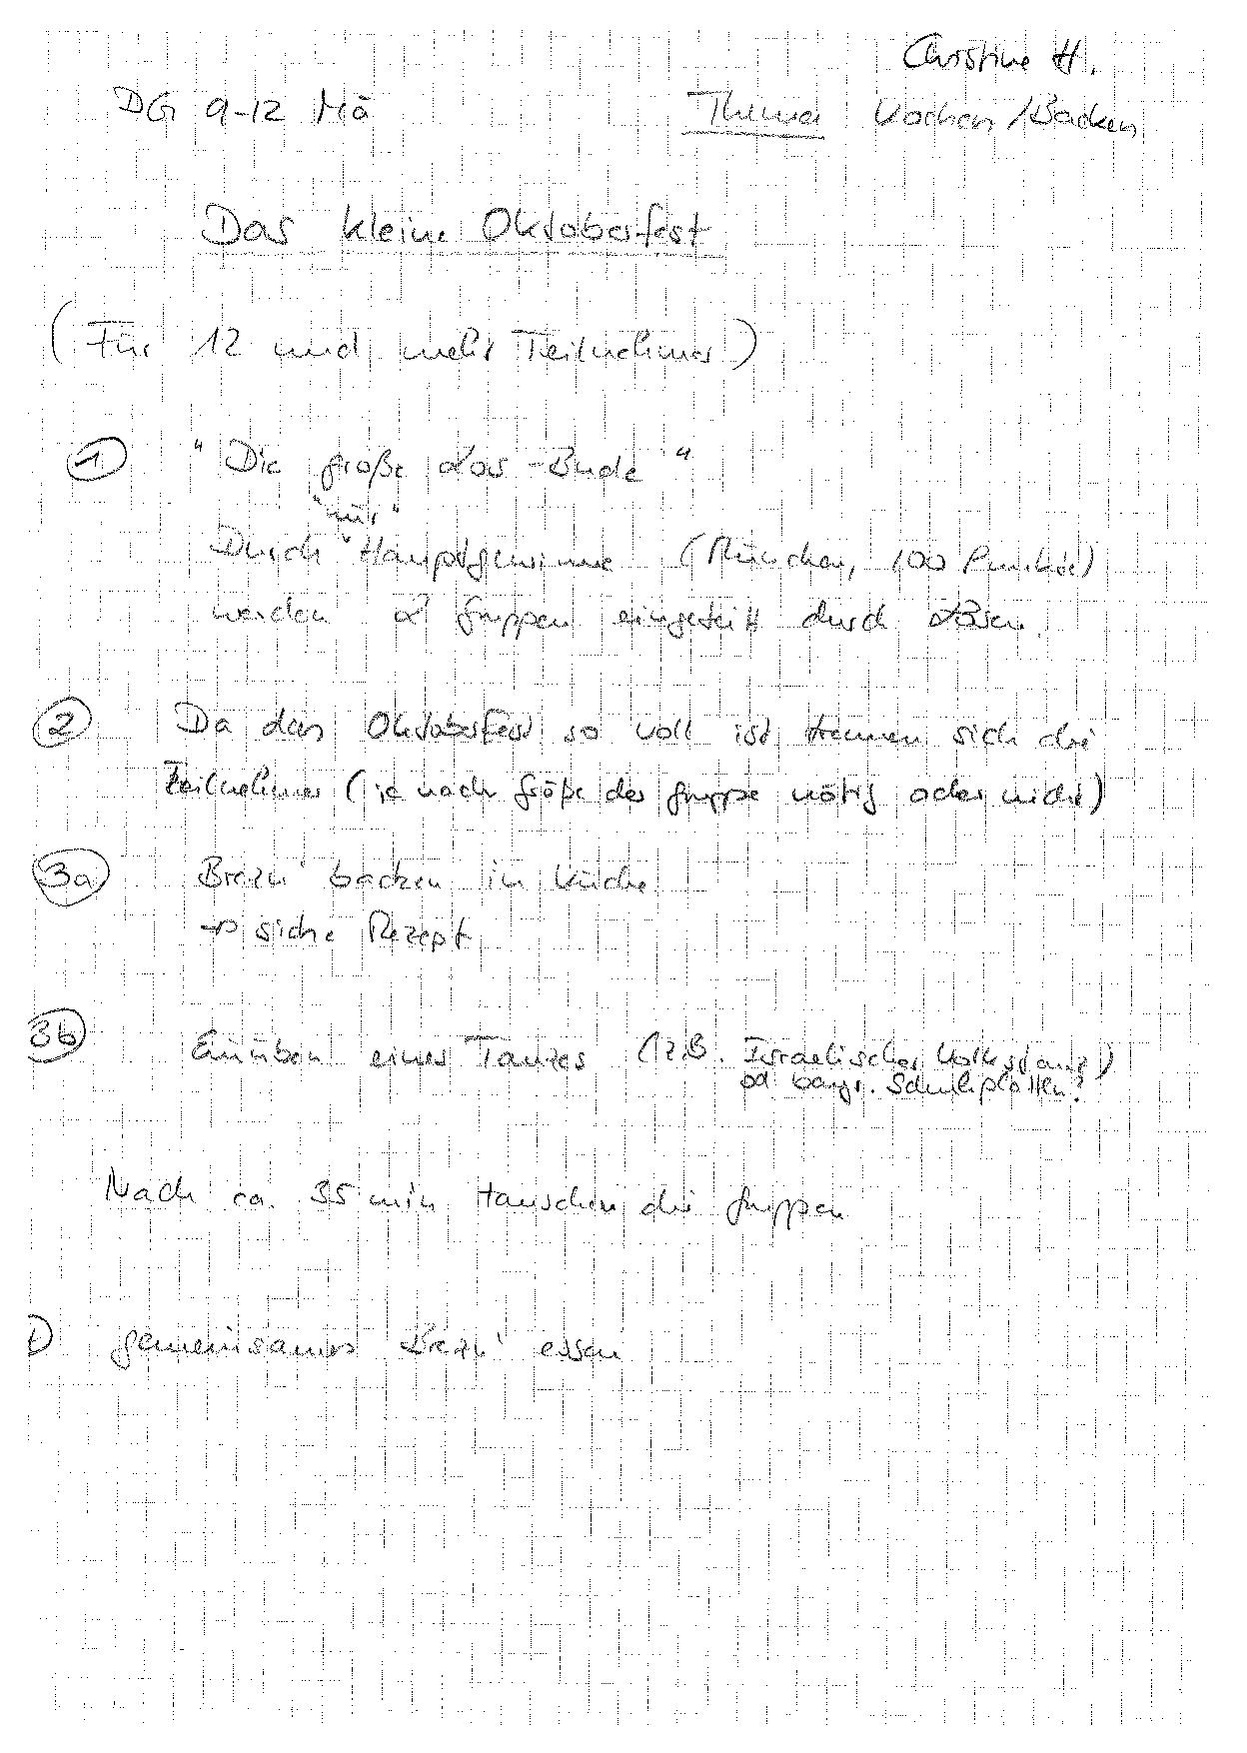 Christine H.
DG 9-12 Mä Thema Kochen/Backen
Das kleine Oktoberfest
(Für 12 und mehr Teilnehmer)
1 "Die große Los-Bude"
"nur"
Durch "Hauptgewinne (München, 100 Punkte)
werden 2 Gruppen eingeteilt durch Losen.
2 Da das Oktoberfest so voll ist trennen sich die
Teilnehmer (je nach Größe der Gruppe nötig oder nicht)
3a Brezn' backen in Küche
→ siehe Rezept
3b Einüben eines Tanzes (z.B. Israelischer Volkstanz)
od bayr. Schuhplattln?
Nach ca. 35 min tauschen die Gruppen
gemeinsames Brezn' essen